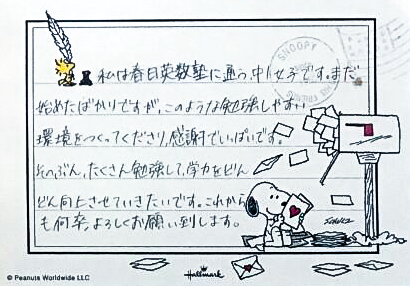 SNOOPY
私は春日英数塾に通う、中1女子です。まだ
始めたばかりですが、このような勉強しやすい
環境をつくってくださり、感謝でいっぱいです。
そのぶん、たくさん勉強して、学力をどん
どん向上させていきたいです。これから
も何卒よろしくお願い致します。
SCHULZ
© Peanuts Worldwide LLC
Hallmark